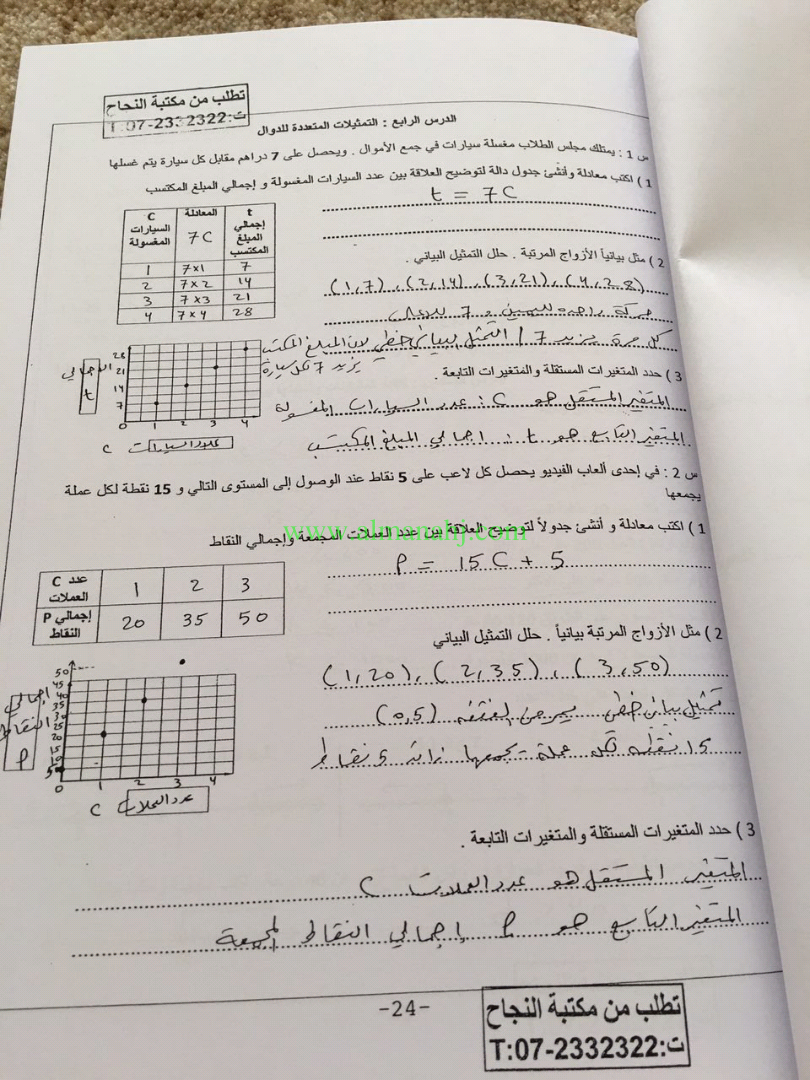 تطلب من مكتبة النجاح
ت:T:07-2332322
الدرس الرابع : التمثيلات المتعددة للدوال
س 1 : يمتلك مجلس الطلاب مغسلة سيارات في جمع الأموال . ويحصل على 7 دراهم مقابل كل سيارة يتم غسلها
1 ) اكتب معادلة وأنشئ جدول دالة لتوضيح العلاقة بين عدد السيارات المغسولة و إجمالي المبلغ المكتسب
t = 7C
C السيارات المغسولة | المعادلة 7C | t إجمالي المبلغ المكتسب
1 | 7×1 | 7
2 | 7×2 | 14
3 | 7×3 | 21
4 | 7×4 | 28
2 ) مثل بيانياً الأزواج المرتبة . حلل التمثيل البياني .
(1,7) , (2,14) , (3,21) , (4,28)
حركة واحدة لليمين و 7
كل مرة يزيد 7 / التمثل البياني خطي لان المبلغ المكتسب
يزيد 7 لكل سيارة
28
21
14
7
0 1 2 3 4
الاجمالي
t
C عدد السيارات
3 ) حدد المتغيرات المستقلة والمتغيرات التابعة .
المتغير المستقل هو C : عدد السيارات المغسولة
المتغير التابع هو t : اجمالي المبلغ المكتسب
س 2 : في إحدى ألعاب الفيديو يحصل كل لاعب على 5 نقاط عند الوصول إلى المستوى التالي و 15 نقطة لكل عملة
يجمعها
www.almanahj.com
1 ) اكتب معادلة و أنشئ جدولاً لتوضيح العلاقة بين عدد العملات المجمعة وإجمالي النقاط
P = 15C + 5
عدد C العملات | 1 | 2 | 3
إجمالي P النقاط | 20 | 35 | 50
2 ) مثل الأزواج المرتبة بيانياً . حلل التمثيل البياني
(1,20) , (2,35) , (3,50)
تمثيل بياني خطي يمر من النقطة (0,5)
15 نقطة لكل عملة يجمعها زائد 5 نقاط
50
45
40
35
30
25
20
15
10
5
0 1 2 3 4
إجمالي
النقاط
P
C عدد العملات
3 ) حدد المتغيرات المستقلة والمتغيرات التابعة .
المتغير المستقل هو عدد العملات C
المتغير التابع هو P إجمالي النقاط المجمعة
-24-
تطلب من مكتبة النجاح
ت:T:07-2332322